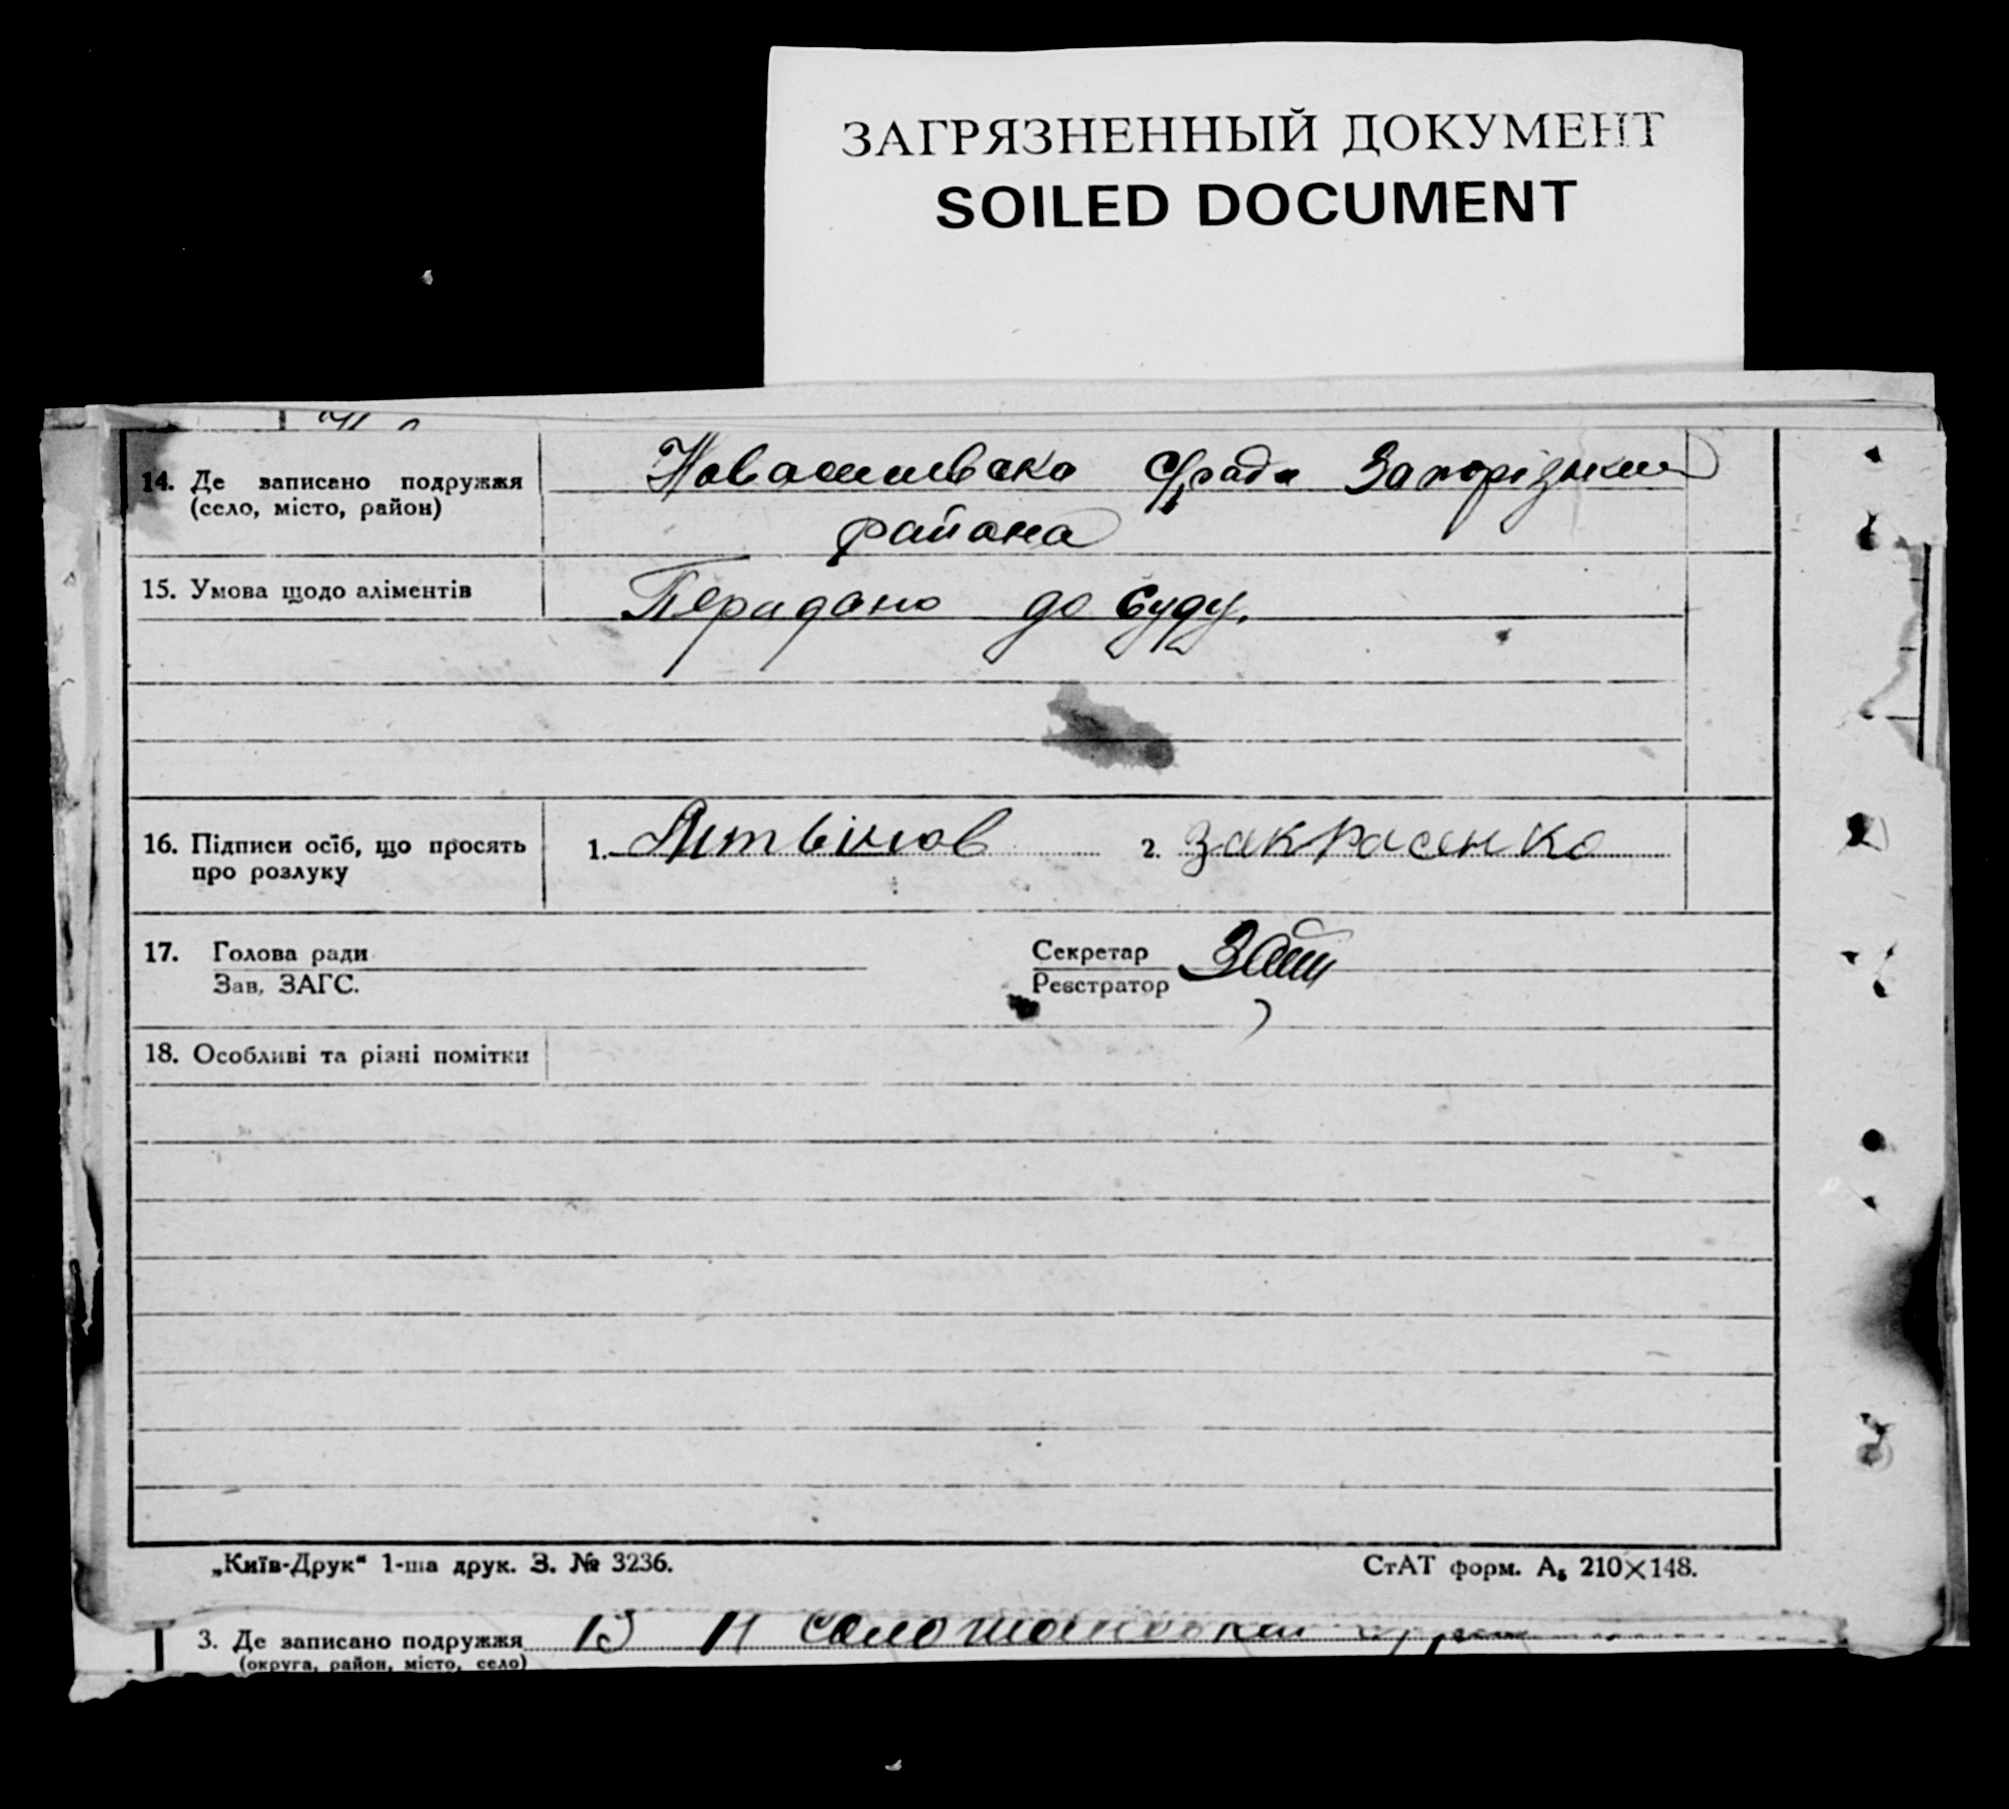 ЗАГРЯЗНЕННЫЙ ДОКУМЕНТ
SOILED DOCUMENT
14. Де записано подружжя
(село, місто, район)
с/рада Запорізький
района
15. Умова щодо аліментів
Перидано до суду.
16. Підписи осіб, що просять
про розлуку
1. Литвінов 2. Закрасенко
17. Голова ради
Зав. ЗАГС.
Секретар
Реєстратор
18. Особливі та різні помітки
„Київ-Друк“ 1-ша друк. З. № 3236.
СтАТ форм. А₅ 210×148.
3. Де записано подружжя
(округа, район, місто, село)